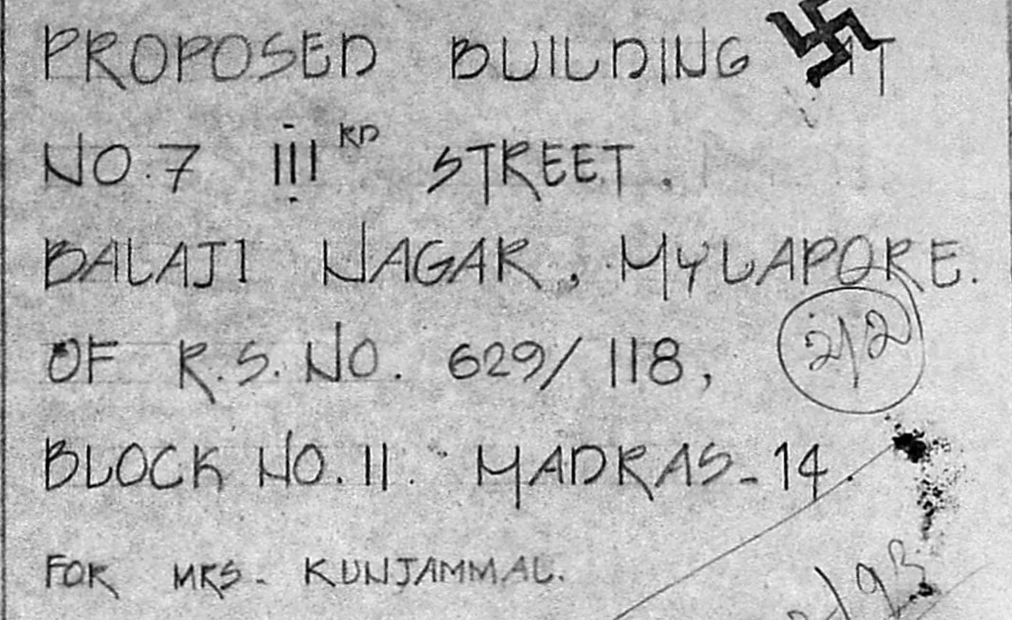 PROPOSED BUILDING AT
NO.7 III RD STREET.
BALAJI NAGAR, MYLAPORE.
OF R.S. NO. 629/118,
2/2
BLOCK NO. 11. MADRAS-14.
FOR MRS. KUNJAMMAL.
/93